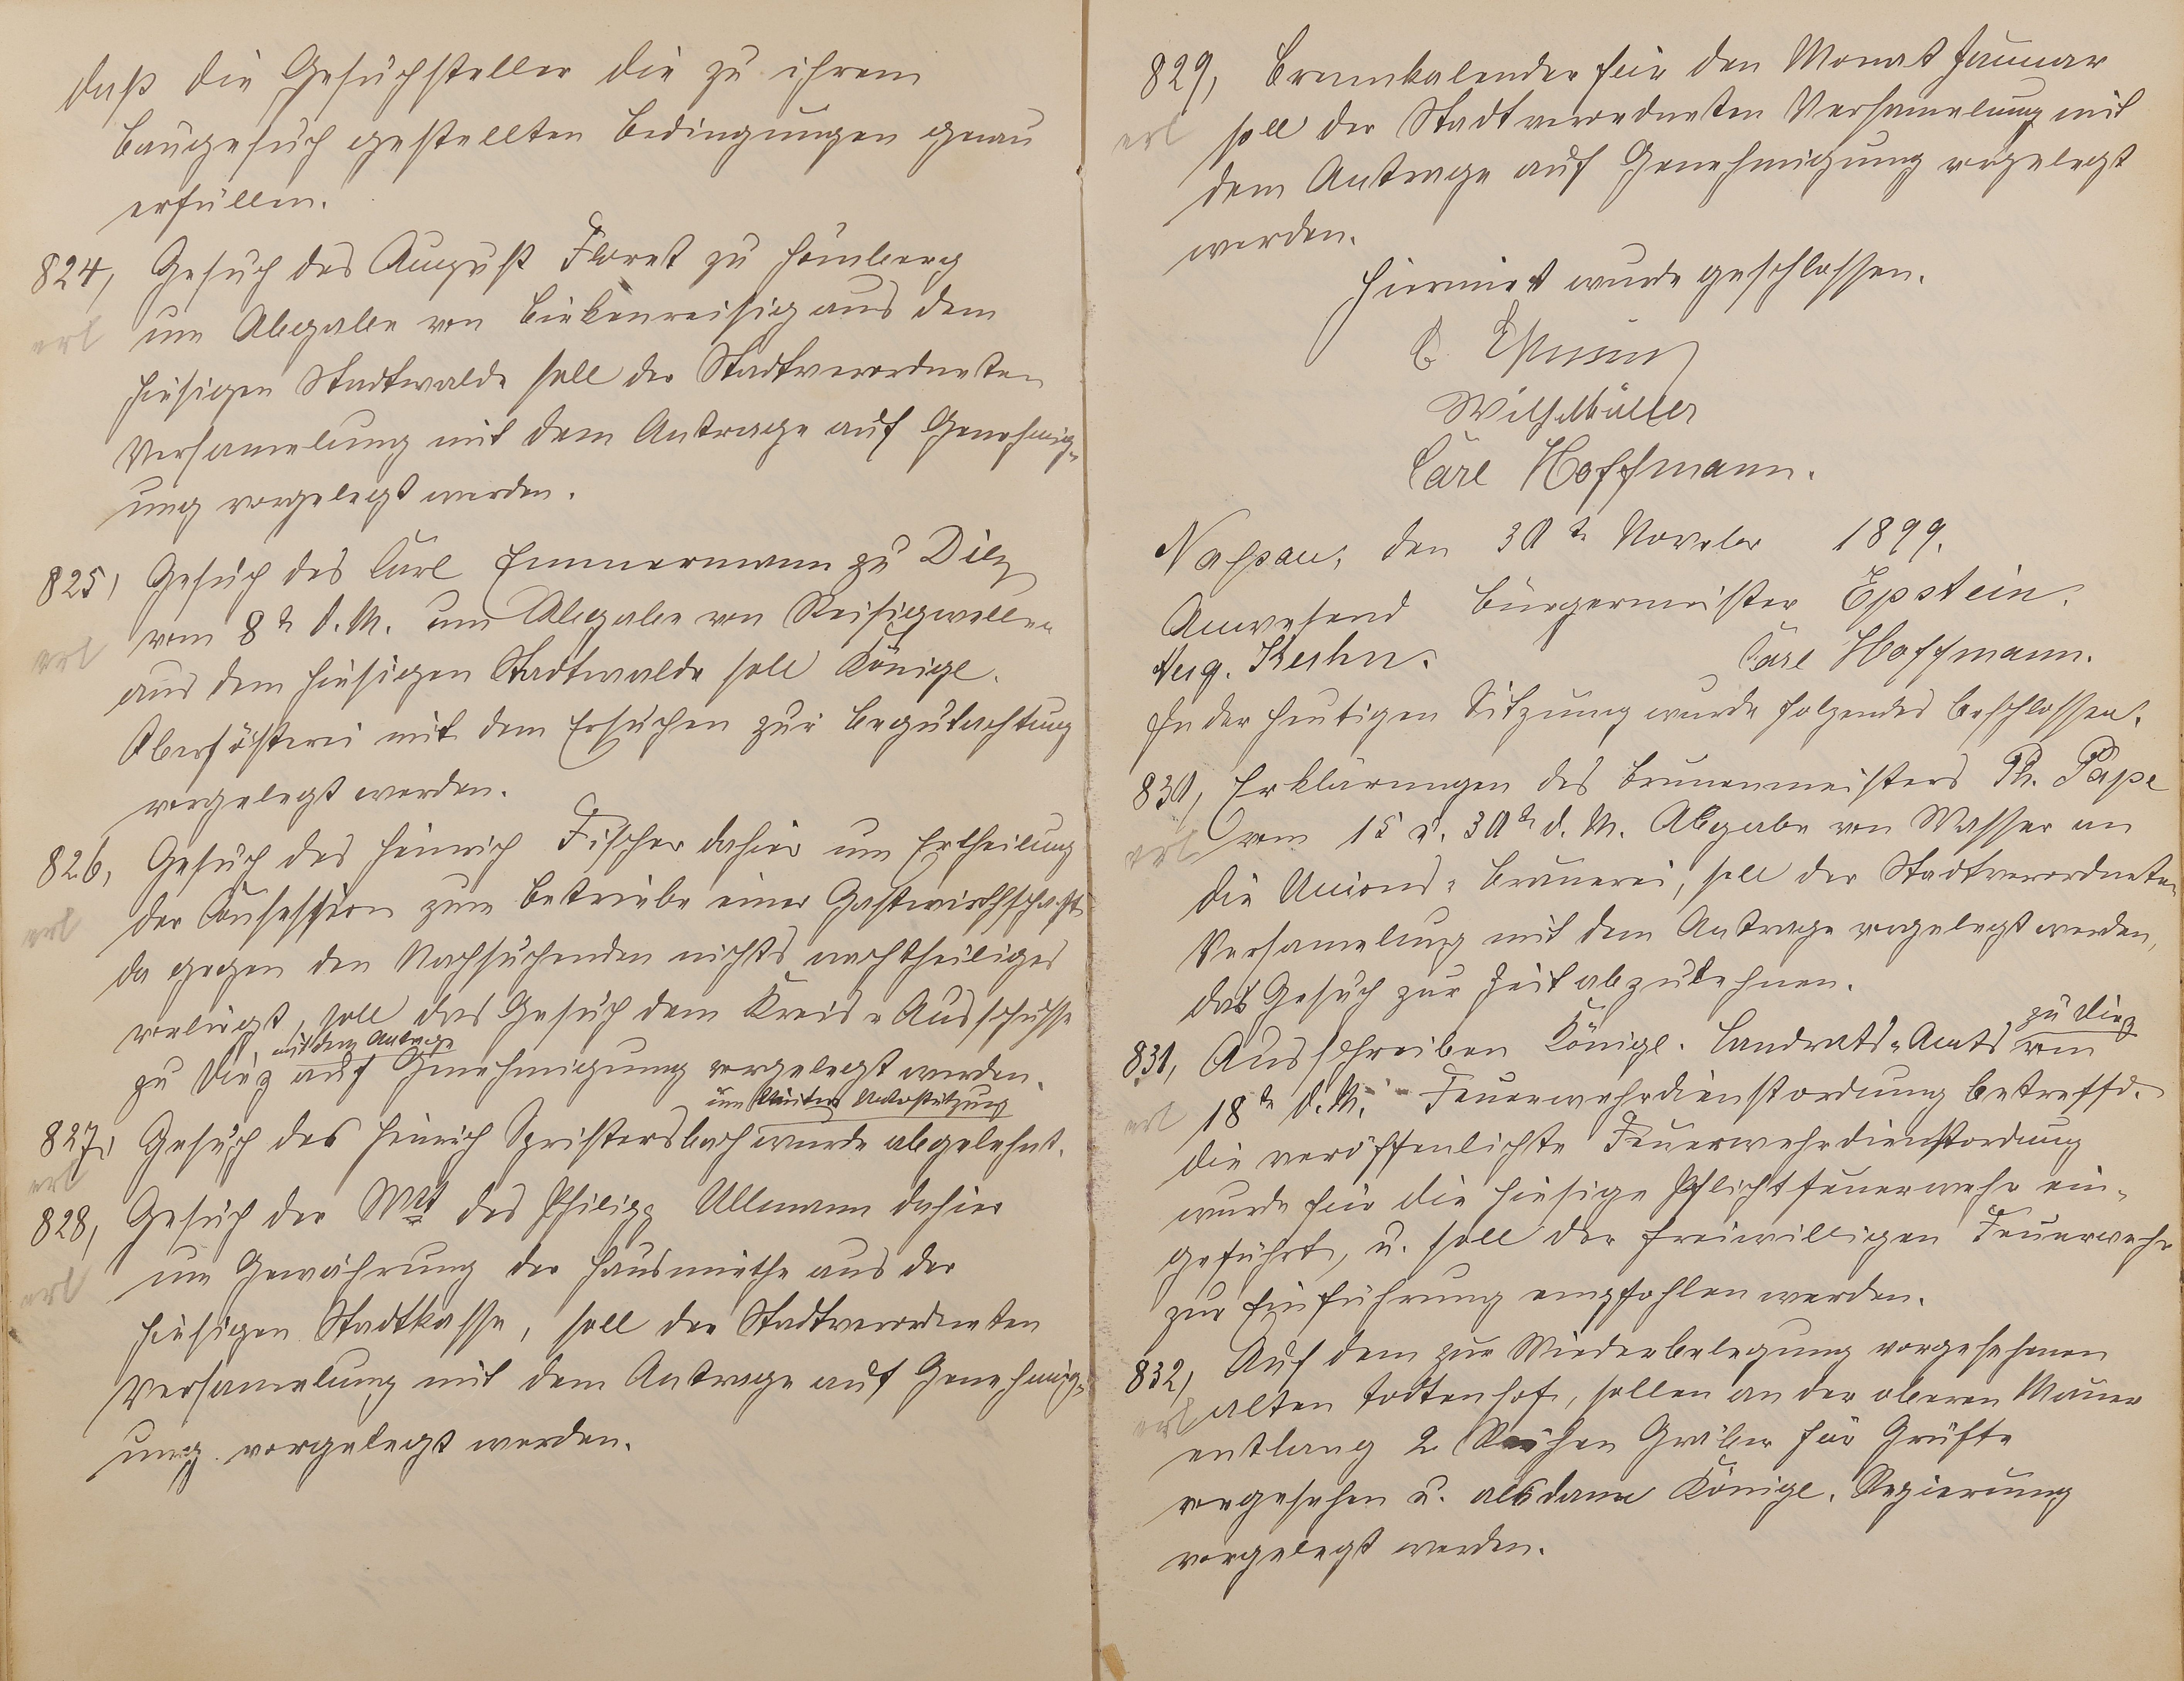 daß die Gesuchsteller die zu ihrem
Baugesuch gestellten Bedingungen genau
erfüllen.
824, Gesuch des August Floret zu Hömberg
erl um Abgabe von Birkenreisig aus dem
hiesigen Stadtwalde soll der Stadtverordneten
Versamelung mit dem Antrage auf Genehmig-
ung vorgelegt werden.
825, Gesuch des Carl Emmermann zu Diez
erl vom 8t d. M. um Abgabe von Reisigwellen
aus dem hiesigen Stadtwalde soll Königl.
Oberförsterei mit dem Ersuchen zur Begutachtung
vorgelegt werden.
826, Gesuch des Heinrich Fischer dahier um Ertheilung
erl der Konsession zum Betriebe einer Gastwirthschaft
da gegen den Nachsuchenden nichts nachtheiliges
vorliegt, soll das Gesuch dem Kreis-Ausschusse
mit dem Antrage
zu Diez auf Genehmigung vorgelegt werden.
um Unterstützung
827, Gesuch des Heinrich Spriestersbach wurde abgelehnt.
erl
828, Gesuch der Wtt des Philipp Ullmann dahier
erl um Gewährung der Hausmiethe aus der
hiesigen Stadtkasse, soll der Stadtverordneten
Versamelung mit dem Antrage auf Genehmig-
ung vorgelegt werden.
829, Brennkalender für den Monat Januar
erl soll der Stadtverordneten Versamelung mit
dem Antrage auf Genehmigung vorgelegt
werden.
Hiermit wurde geschlossen.
Wilh. Müller
Carl Hoffmann.
Nassau, den 30t Novebr 1899.
Anwesend Bürgermeister Epstein.
Aug. Kuhn. Carl Hoffmann.
In der heutigen Sitzung wurde folgendes beschlossen.
830, Erklärungen des Brunenmeisters Ph. Pape
erl vom 15 u. 30t d. M. Abgabe von Wasser an
die Unions-Brauerei, soll der Stadtverordneten
Versamelung mit dem Antrage vorgelegt werden,
das Gesuch zur Zeit abzulehnen.
zu Diez
831, Ausschreiben Königl. Landrats-Amts vom
erl 18t d. M. Feuerwehrdienstordnung betreffd.
die veröffenlichte Feuerwehrdienstordnung
wurde für die hiesige Pflichtfeuerwehr ein-
geführt, u. soll der freiwilligen Feuerwehr
zur Einführung empfohlen werden.
832, Auf dem zur Wiederbelegung vorgesehenen
erl alten Todtenhof, sollen an der oberen Mauer
entlang 2 Reihen Gräber für Grüfte
vorgesehen u. alsdann Königl. Regierung
vorgelegt werden.